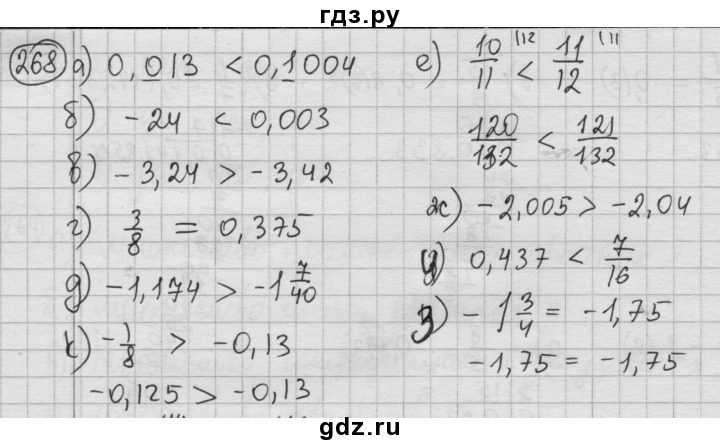 гдз.ру
268 а) 0,013 < 0,1004
б) -24 < 0,003
в) -3,24 > -3,42
г) 3/8 = 0,375
д) -1,174 > -1 7/40
к) -1/8 > -0,13
-0,125 > -0,13
е) 10/11 |12 < 11/12 |11
120/132 < 121/132
ж) -2,005 > -2,04
и) 0,437 < 7/16
з) -1 3/4 = -1,75
-1,75 = -1,75
gdz.ru